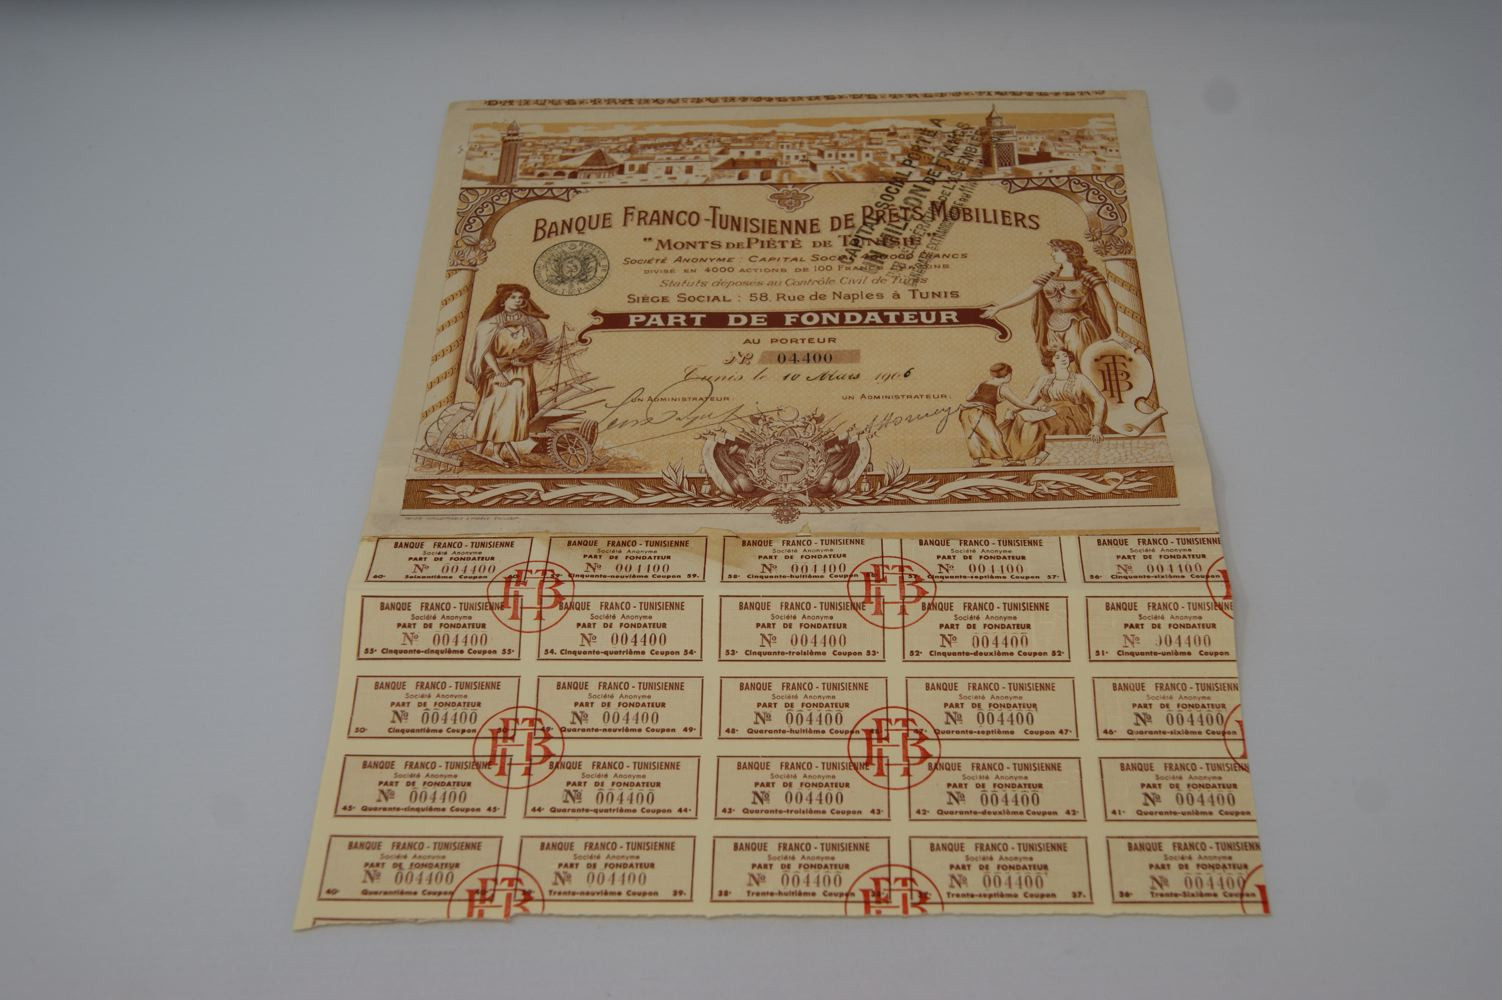 BANQUE FRANCO-TUNISIENNE DE PRÊTS MOBILIERS
"MONTS DE PIÉTÉ DE
SOCIÉTÉ ANONYME : CAPITAL FRANCS
DIVISÉ EN 4000 ACTIONS DE 100 FRANCS
Statuts déposés au Contrôle Civil de Tunis
SIÈGE SOCIAL : 58, Rue de Naples à TUNIS
CAPITAL SOCIAL PORTÉ A
UN MILLION DE FRANCS
PART DE FONDATEUR
AU PORTEUR
Nº 04.400
Tunis le 10 Mars 1906
UN ADMINISTRATEUR UN ADMINISTRATEUR
BANQUE FRANCO - TUNISIENNE BANQUE FRANCO - TUNISIENNE BANQUE FRANCO - TUNISIENNE BANQUE FRANCO - TUNISIENNE BANQUE FRANCO - TUNISIENNE
Société Anonyme Société Anonyme Société Anonyme Société Anonyme Société Anonyme
PART DE FONDATEUR PART DE FONDATEUR PART DE FONDATEUR PART DE FONDATEUR PART DE FONDATEUR
Nº 004400 Nº 004400 Nº 004400 Nº 004400 Nº 004400
60e Soixantième Coupon Cinquante-neuvième Coupon 59e 58e Cinquante-huitième Coupon Cinquante-septième Coupon 57e 56e Cinquante-sixième Coupon
BANQUE FRANCO - TUNISIENNE BANQUE FRANCO - TUNISIENNE BANQUE FRANCO - TUNISIENNE BANQUE FRANCO - TUNISIENNE BANQUE FRANCO - TUNISIENNE
Société Anonyme Société Anonyme Société Anonyme Société Anonyme Société Anonyme
PART DE FONDATEUR PART DE FONDATEUR PART DE FONDATEUR PART DE FONDATEUR PART DE FONDATEUR
Nº 004400 Nº 004400 Nº 004400 Nº 004400 Nº 004400
55e Cinquante-cinquième Coupon 55e 54e Cinquante-quatrième Coupon 54e 53e Cinquante-troisième Coupon 53e 52e Cinquante-deuxième Coupon 52e 51e Cinquante-unième Coupon
BANQUE FRANCO - TUNISIENNE BANQUE FRANCO - TUNISIENNE BANQUE FRANCO - TUNISIENNE BANQUE FRANCO - TUNISIENNE BANQUE FRANCO - TUNISIENNE
Société Anonyme Société Anonyme Société Anonyme Société Anonyme Société Anonyme
PART DE FONDATEUR PART DE FONDATEUR PART DE FONDATEUR PART DE FONDATEUR PART DE FONDATEUR
Nº 004400 Nº 004400 Nº 004400 Nº 004400 Nº 004400
50e Cinquantième Coupon 49e Quarante-neuvième Coupon 49e 48e Quarante-huitième Coupon 47e Quarante-septième Coupon 47e 46e Quarante-sixième Coupon
BANQUE FRANCO - TUNISIENNE BANQUE FRANCO - TUNISIENNE BANQUE FRANCO - TUNISIENNE BANQUE FRANCO - TUNISIENNE BANQUE FRANCO - TUNISIENN
Société Anonyme Société Anonyme Société Anonyme Société Anonyme Société Anonyme
PART DE FONDATEUR PART DE FONDATEUR PART DE FONDATEUR PART DE FONDATEUR PART DE FONDATEUR
Nº 004400 Nº 004400 Nº 004400 Nº 004400 Nº 004400
45e Quarante-cinquième Coupon 45e 44e Quarante-quatrième Coupon 44e 43e Quarante-troisième Coupon 43e 42e Quarante-deuxième Coupon 42e 41e Quarante-unième Coupon
BANQUE FRANCO - TUNISIENNE BANQUE FRANCO - TUNISIENNE BANQUE FRANCO - TUNISIENNE BANQUE FRANCO - TUNISIENNE BANQUE FRANCO - TUNISIENN
Société Anonyme Société Anonyme Société Anonyme Société Anonyme Société Anonyme
PART DE FONDATEUR PART DE FONDATEUR PART DE FONDATEUR PART DE FONDATEUR PART DE FONDATEUR
Nº 004400 Nº 004400 Nº 004400 Nº 004400 Nº 004400
40e Quarantième Coupon Trente-neuvième Coupon 39e 38e Trente-huitième Coupon Trente-septième Coupon 37e 36e Trente-Sixième Coupon